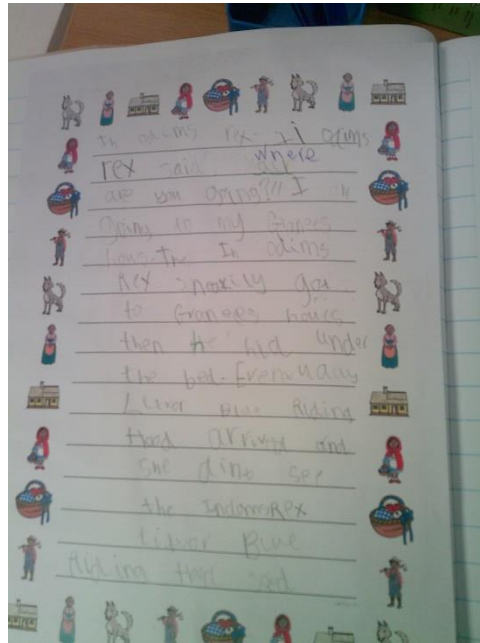 In odims rex- i odims
rex said where
are you going?" I am
going to my Granees
hous. The In odims
Rex sneekily got
to Granees hours
then he hid under
the bed. Evenuaday
Littor Blue Riding
Hood arrived and
she dint see
the IndomsRex
Littor Blue
Riding Hood said